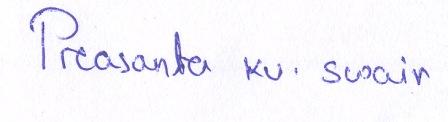 Preasanta ku. swain